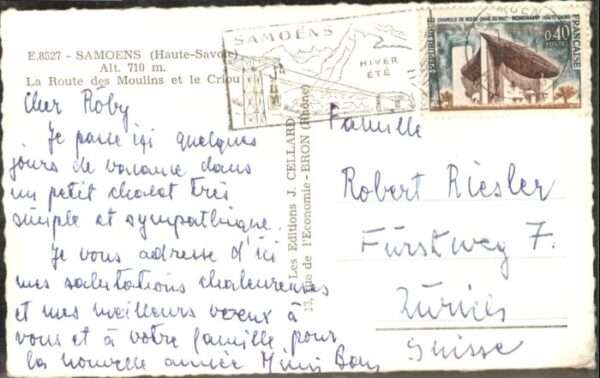 E.8527 - SAMOENS (Haute-Savoie)
Alt. 710 m.
La Route des Moulins et le Criou
SAMOËNS
HIVER
ÉTÉ
0,40
POSTES
REPUBLIQUE
FRANÇAISE
Cher Röby
Je passe ici quelques
jours de vacance dans
un petit chalet très
simple et sympathique.
Je vous adresse d'ici
mes salutations chaleureuses
et mes meilleurs voeux à
vous et à votre famille pour
la nouvelle année
Les Editions J. CELLARD
13, Rue de l'Economie-BRON (Rhône)
Famille
Robert Riesler
Fürstweg 7.
Zürich
Suisse